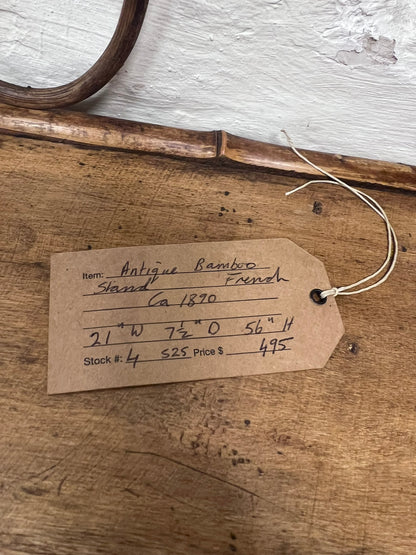 Item: Antique Bamboo
Stand French
Ca 1890
21"W 7½"D 56"H
Stock #: 4 525 Price $ 495